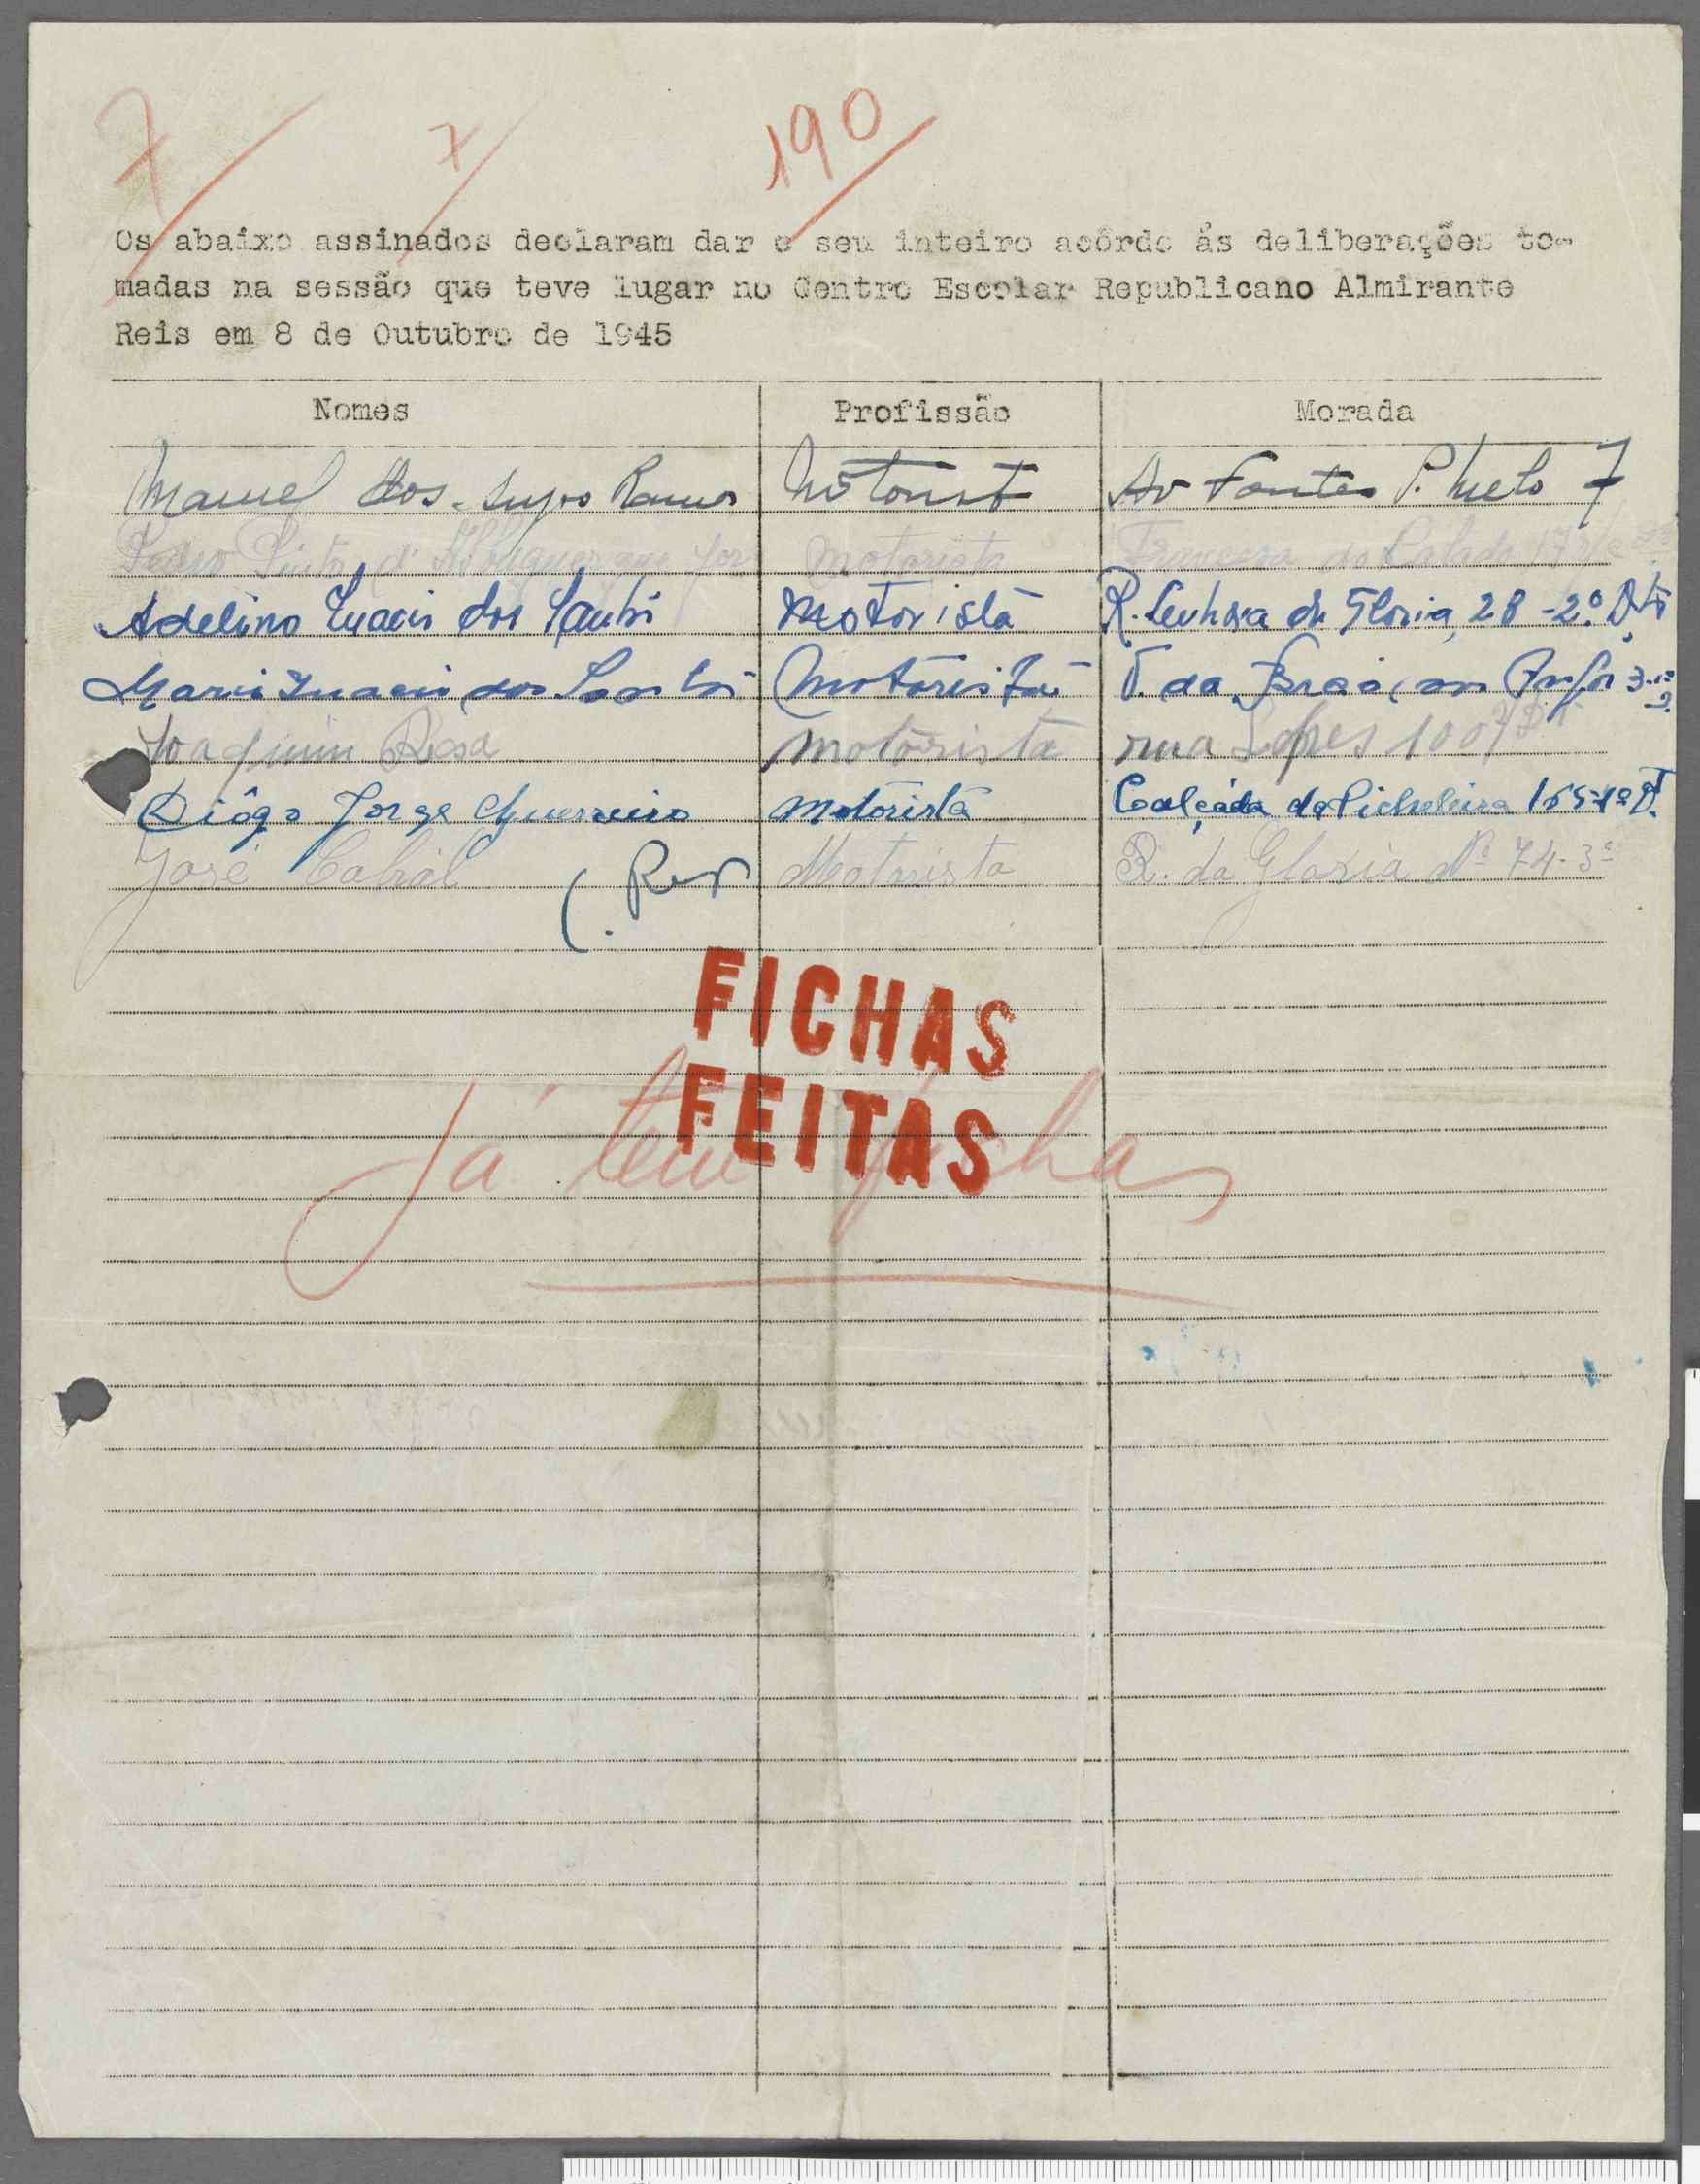 7 7 190
Os abaixo assinados declaram dar o seu inteiro acôrdo ás deliberações to-
madas na sessão que teve lugar no Centro Escolar Republicano Almirante
Reis em 8 de Outubro de 1945
Nomes Profissão Morada
Manuel dos Ramos Motorist Av Fontes P. Melo 7
Pedro Pinto d' Motorista Travessa do
Adelino Inacio dos Santos Motorista R. Senhora da Gloria, 28-2º Dtº
Mario Inacio dos Santos Motorista
Joaquim Rosa Motorista rua Lopes 100
Diôgo Jorge Guerreiro Motorista Calçada da Picheleira 165-1º Dt.
José Cabral Motorista R. da Gloria Nº 74-3º
FICHAS
FEITAS
Já tem fichas